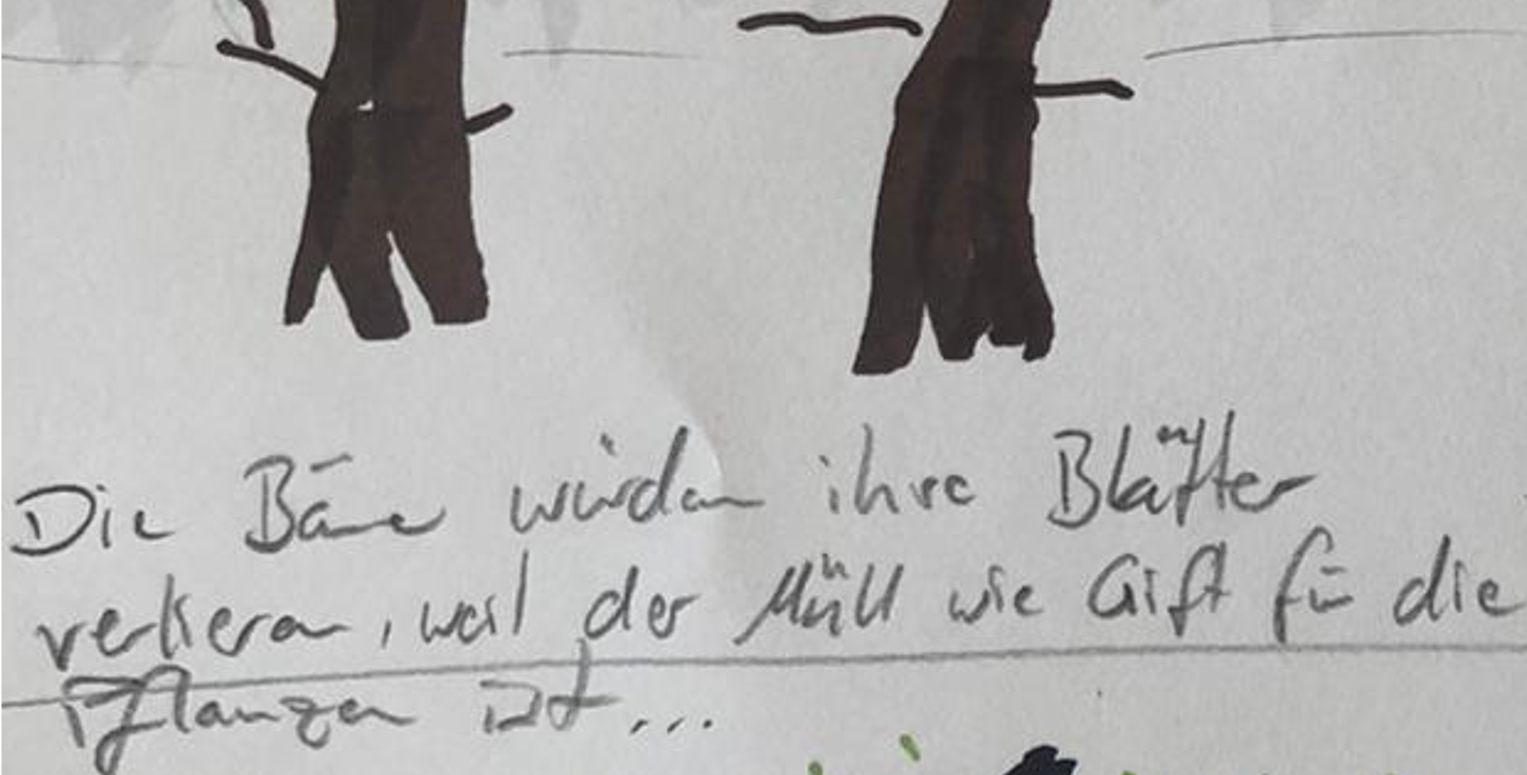 Die Bäume würden ihre Blätter
verlieren, weil der Müll wie Gift für die
Pflanzen ist...